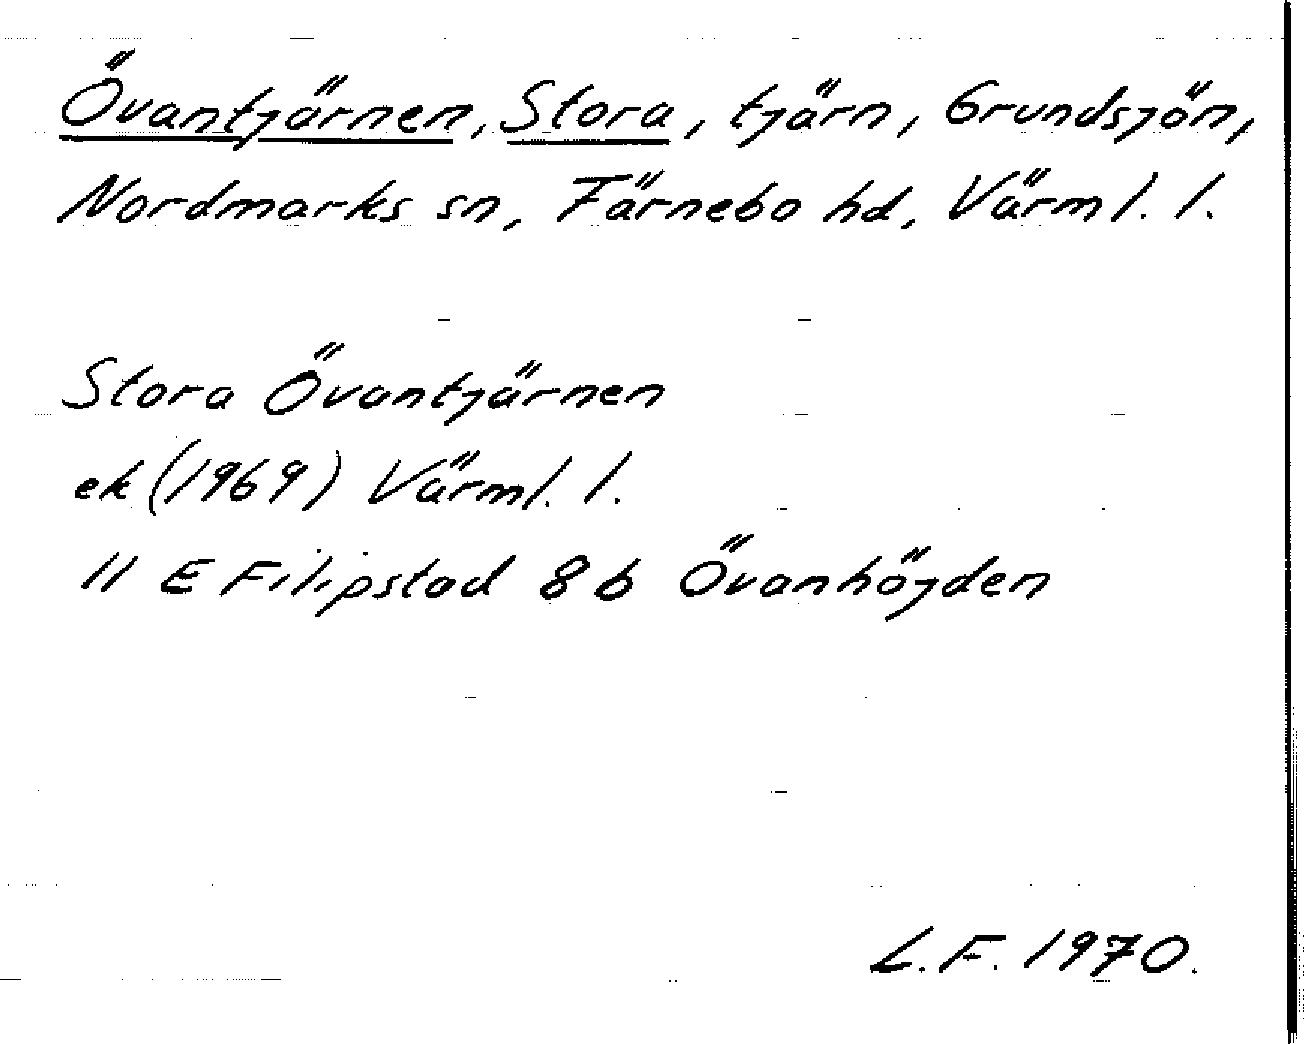 Övantjärnen, Stora, tjärn, Grundsjön,
Nordmarks sn, Färnebo hd, Värml. l.
Stora Övantjärnen
ek (1969) Värml. l.
11 E Filipstad 8 b Övanhöjden
L.F. 1970.